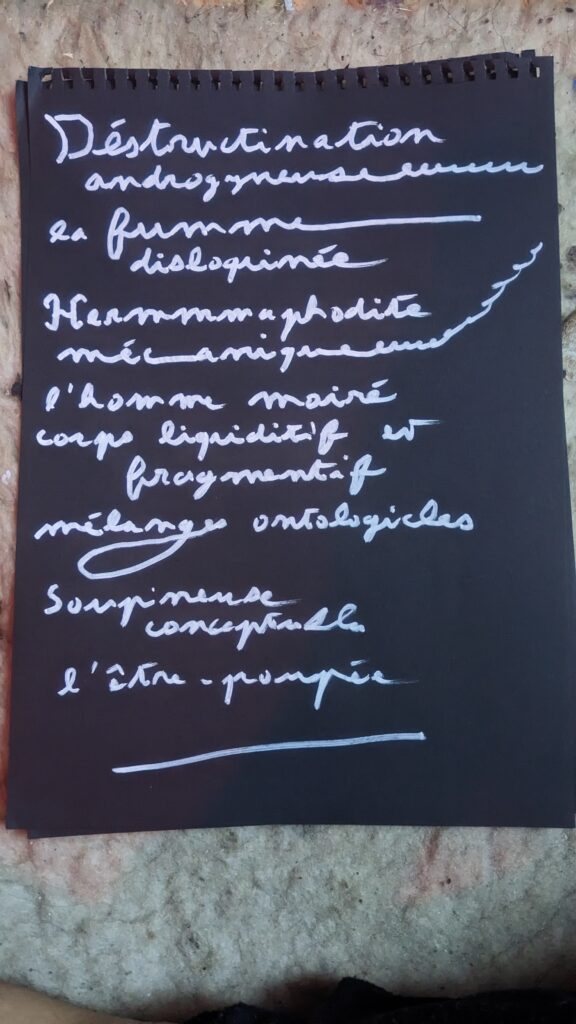 Déstructination
androgyneuse
la fumme
disloquinée
Hermmmaphodite
mécanique
l'homme moiré
corps liquiditif et
fragmentif
mélanges ontologicles
Soupineuse
conceptuelle
l'être-poupée